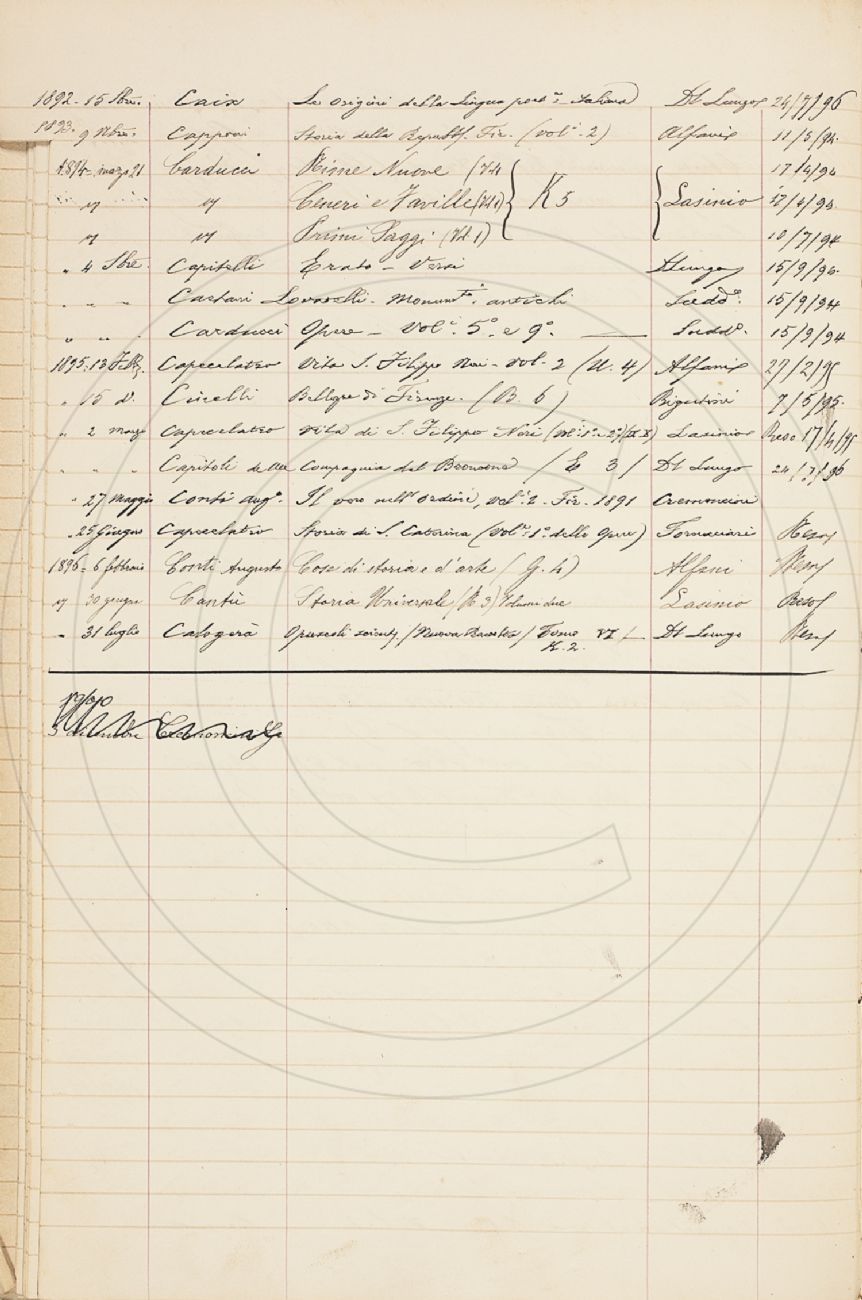 1892 - 15 8bre. Caix Le origini della lingua poet.ª italiana Del Lungo 24/7/96
1893. 9 Nbre. Capponi Storia della Repubb. Fir. (vol.i 2) Alfani 11/5/94.
1894 - marzo 21 Carducci Rime Nuove (Vol. 17/4/94
" " Ceneri e Faville (Vol 1) K 5 Lasinio 17/4/94.
" " Primi Saggi (Vol 1) 10/7/94
" 4 7bre. Capitelli Erato - Versi DLungo 15/9/94.
" " " Caetani Lovatelli - Monum.ti antichi Sudd.º 15/9/94
" " " Carducci Opere - Vol.i 5.º e 9.º Sudd.º 15/9/94
1895. 13 Febb. Capecelatro Vita S. Filippo Neri - Vol. 2 (U. 4) Alfani 27/2/95
" 15 d.º Cinelli Bellezze di Firenze. (B. 6) Rigutini 7/5/95.
" 2 marzo Capecelatro Vita di S. Filippo Neri Lasinio Reso 17/4/95
" " " Capitoli della Compagnia del (E 3) Del Lungo 24/7/96
" 27 Maggio Conti Aug.º Il vero nell'ordine, vol.i 2 - Fir. 1891 Cremoncini
" 25 Giugno Capecelatro Storia di S. Caterina (Vol.º 1.º delle Opere) Fornaciari Reso
1896 - 6 febbraio Conti Augusto Cose di storia e d'arte (G. 4) Alfani Reso
" 30 giugno Cantù Storia Universale (K 3) Volumi due Lasinio Reso
" 31 luglio Calogerà Opuscoli scientif. (Nuova Raccolta) Tomo VI - Del Lungo Reso
K. 2.